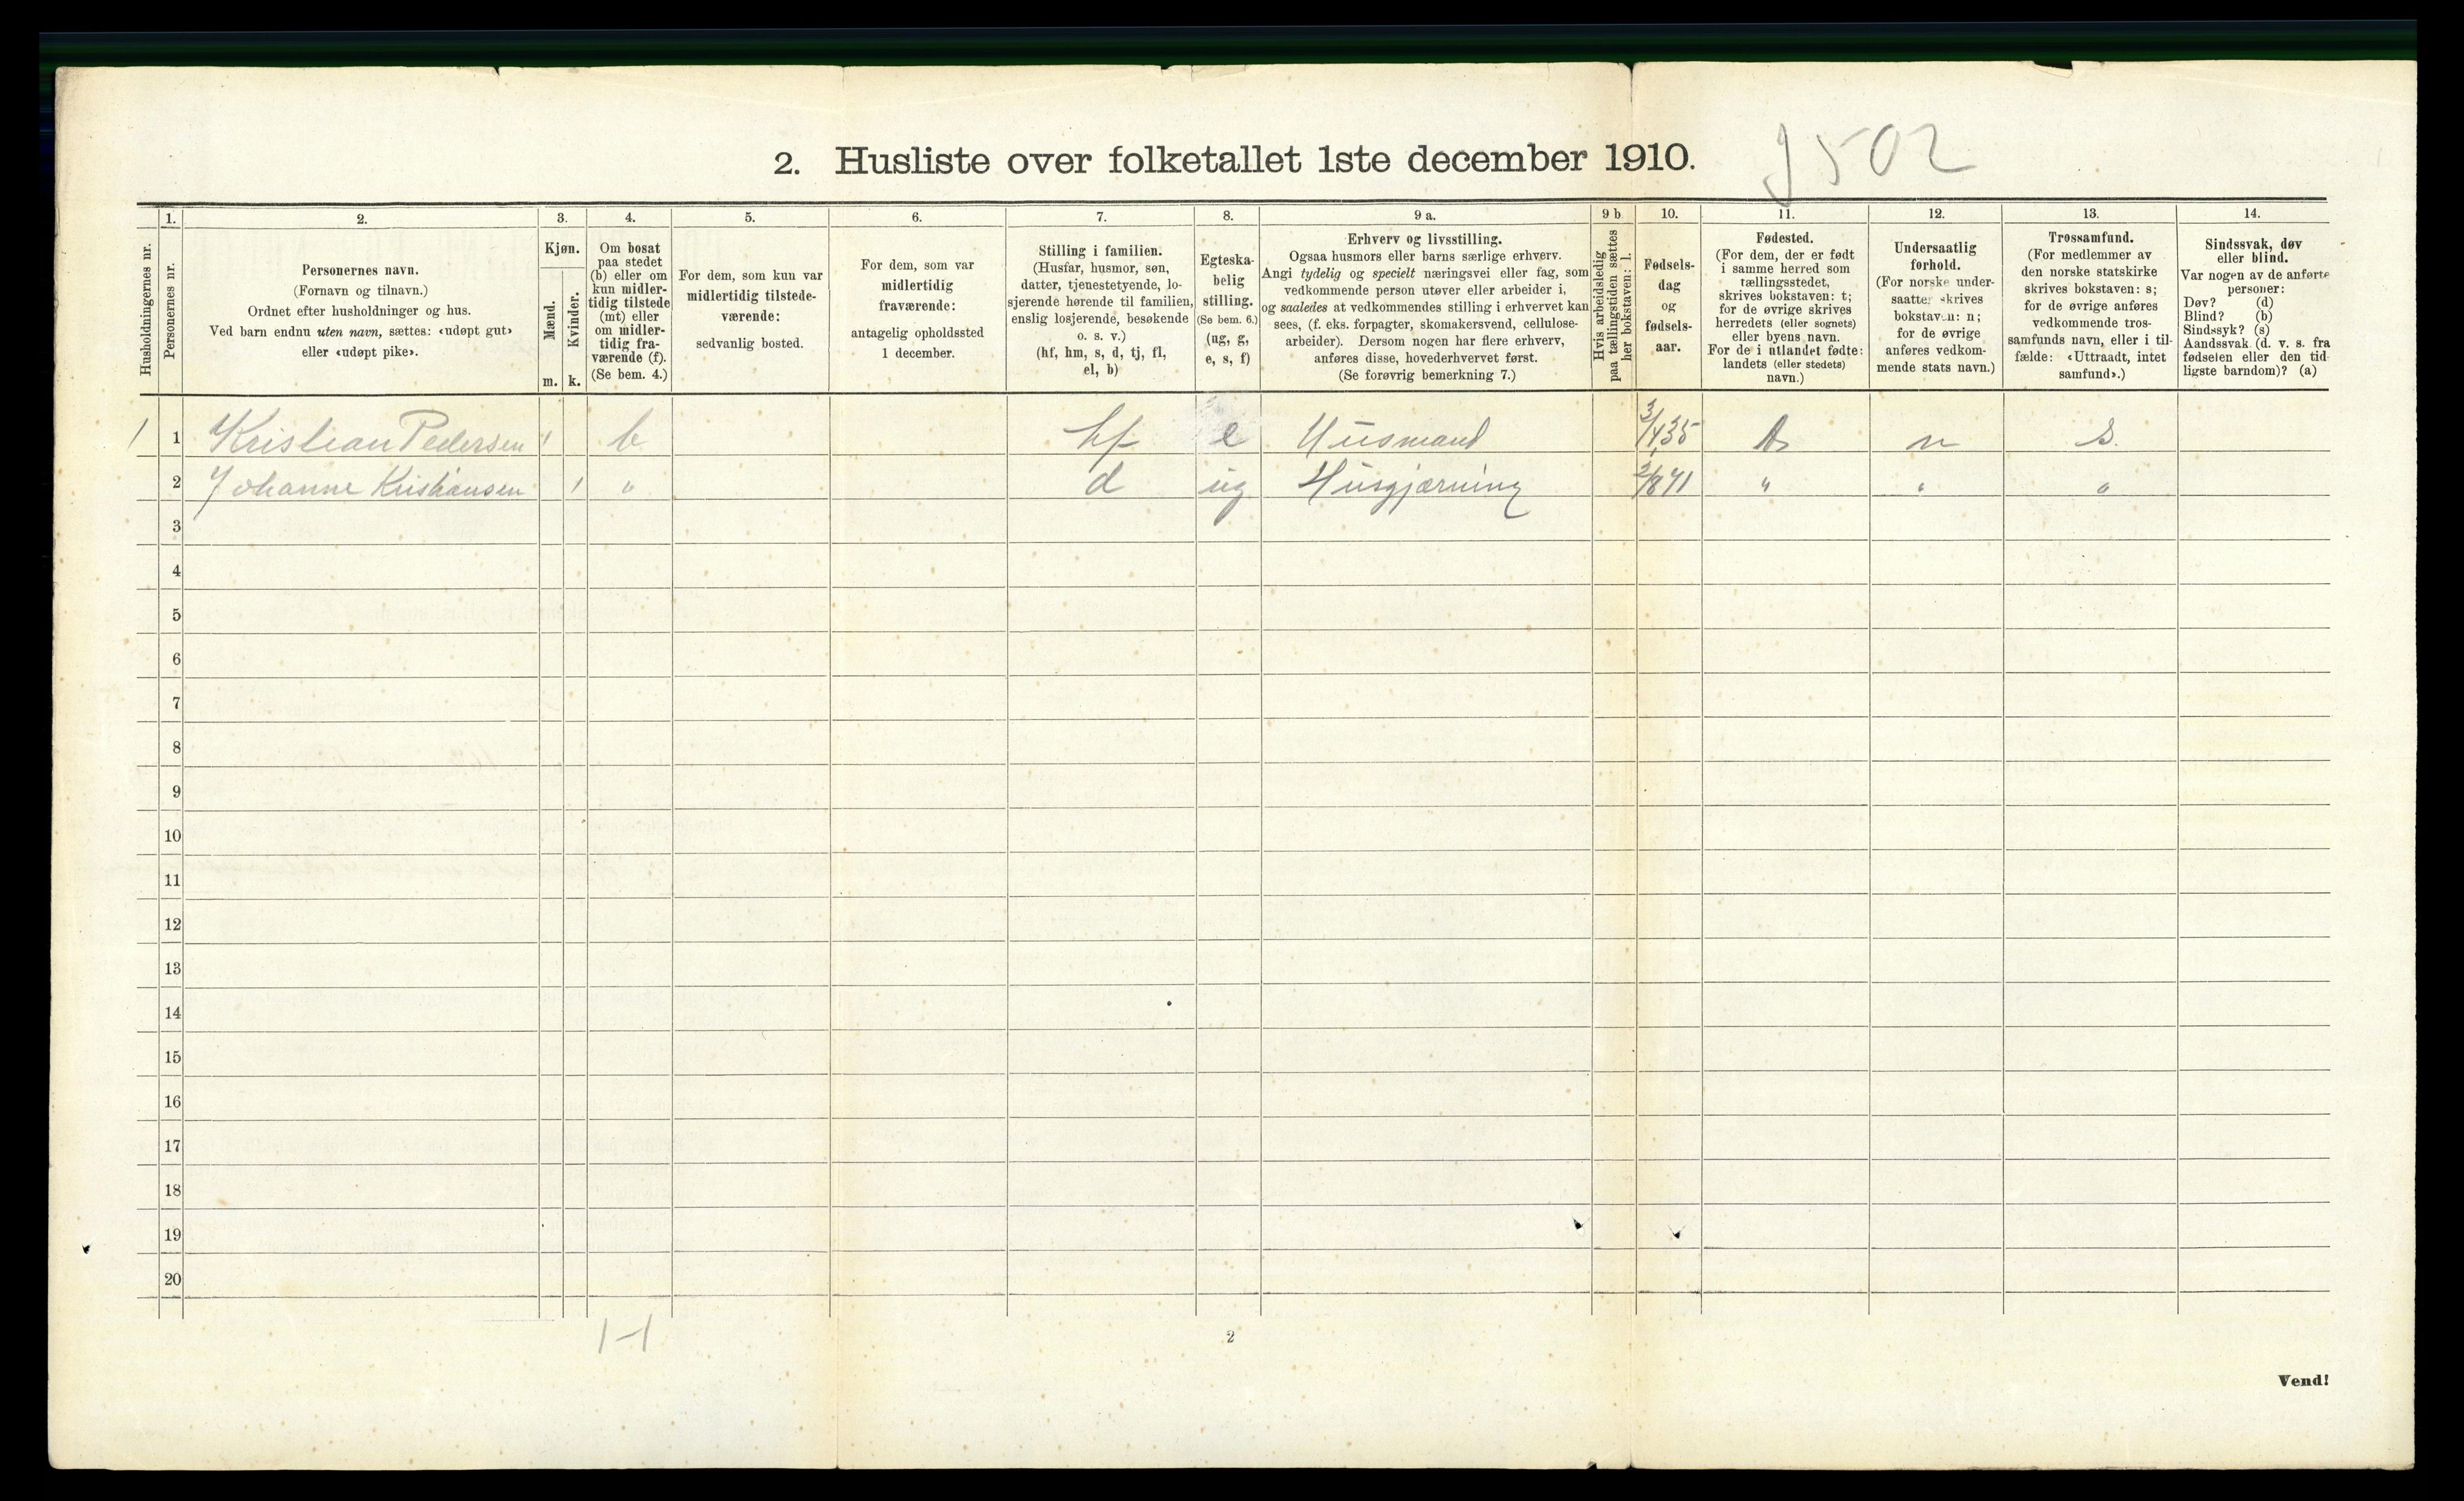 2. Husliste over folketallet 1ste december 1910.
1. 2. 3. 4. 5. 6. 7. 8. 9 a. 9 b 10. 11. 12. 13. 14.
Husholdningernes nr.
Personernes nr.
Personernes navn.
(Fornavn og tilnavn.)
Ordnet efter husholdninger og hus.
Ved barn endnu uten navn, sættes: «udøpt gut»
eller «udøpt pike».
Kjøn.
Mænd.
Kvinder.
m. k.
Om bosat
paa stedet
(b) eller om
kun midler-
tidig tilstede
(mt) eller
om midler-
tidig fra-
værende (f).
(Se bem. 4.)
For dem, som kun var
midlertidig tilstede-
værende:
sedvanlig bosted.
For dem, som var
midlertidig
fraværende:
antagelig opholdssted
1 december.
Stilling i familien.
(Husfar, husmor, søn,
datter, tjenestetyende, lo-
sjerende hørende til familien,
enslig losjerende, besøkende
o. s. v.)
(hf, hm, s, d, tj, fl,
el, b)
Egteska-
belig
stilling.
(Se bem. 6.)
(ug, g,
e, s, f)
Erhverv og livsstilling.
Ogsaa husmors eller barns særlige erhverv.
Angi tydelig og specielt næringsvei eller fag, som
vedkommende person utøver eller arbeider i,
og saaledes at vedkommendes stilling i erhvervet kan
sees, (f. eks. forpagter, skomakersvend, cellulose-
arbeider). Dersom nogen har flere erhverv,
anføres disse, hovederhvervet først.
(Se forøvrig bemerkning 7.)
Hvis arbeidsledig
paa tællingstiden sættes
her bokstaven: l.
Fødsels-
dag
og
fødsels-
aar.
Fødested.
(For dem, der er født
i samme herred som
tællingsstedet,
skrives bokstaven: t;
for de øvrige skrives
herredets (eller sognets)
eller byens navn.
For de i utlandet fødte:
landets (eller stedets)
navn.)
Undersaatlig
forhold.
(For norske under-
saatter skrives
bokstaven: n;
for de øvrige
anføres vedkom-
mende stats navn.)
Trossamfund.
(For medlemmer av
den norske statskirke
skrives bokstaven: s;
for de øvrige anføres
vedkommende tros-
samfunds navn, eller i til-
fælde: «Uttraadt, intet
samfund».)
Sindssvak, døv
eller blind.
Var nogen av de anførte
personer:
Døv? (d)
Blind? (b)
Sindssyk? (s)
Aandssvak (d. v. s. fra
fødselen eller den tid
ligste barndom)? (a)
1 1 Kristian Pedersen 1 b hf e Husmand 3/4 35 t n s.
2 Johanne Kristiansen 1 " d ug Husgjærning 71 " " "
3
4
5
6
7
8
9
10
11
12
13
14
15
16
17
18
19
20
1-1
2
Vend!